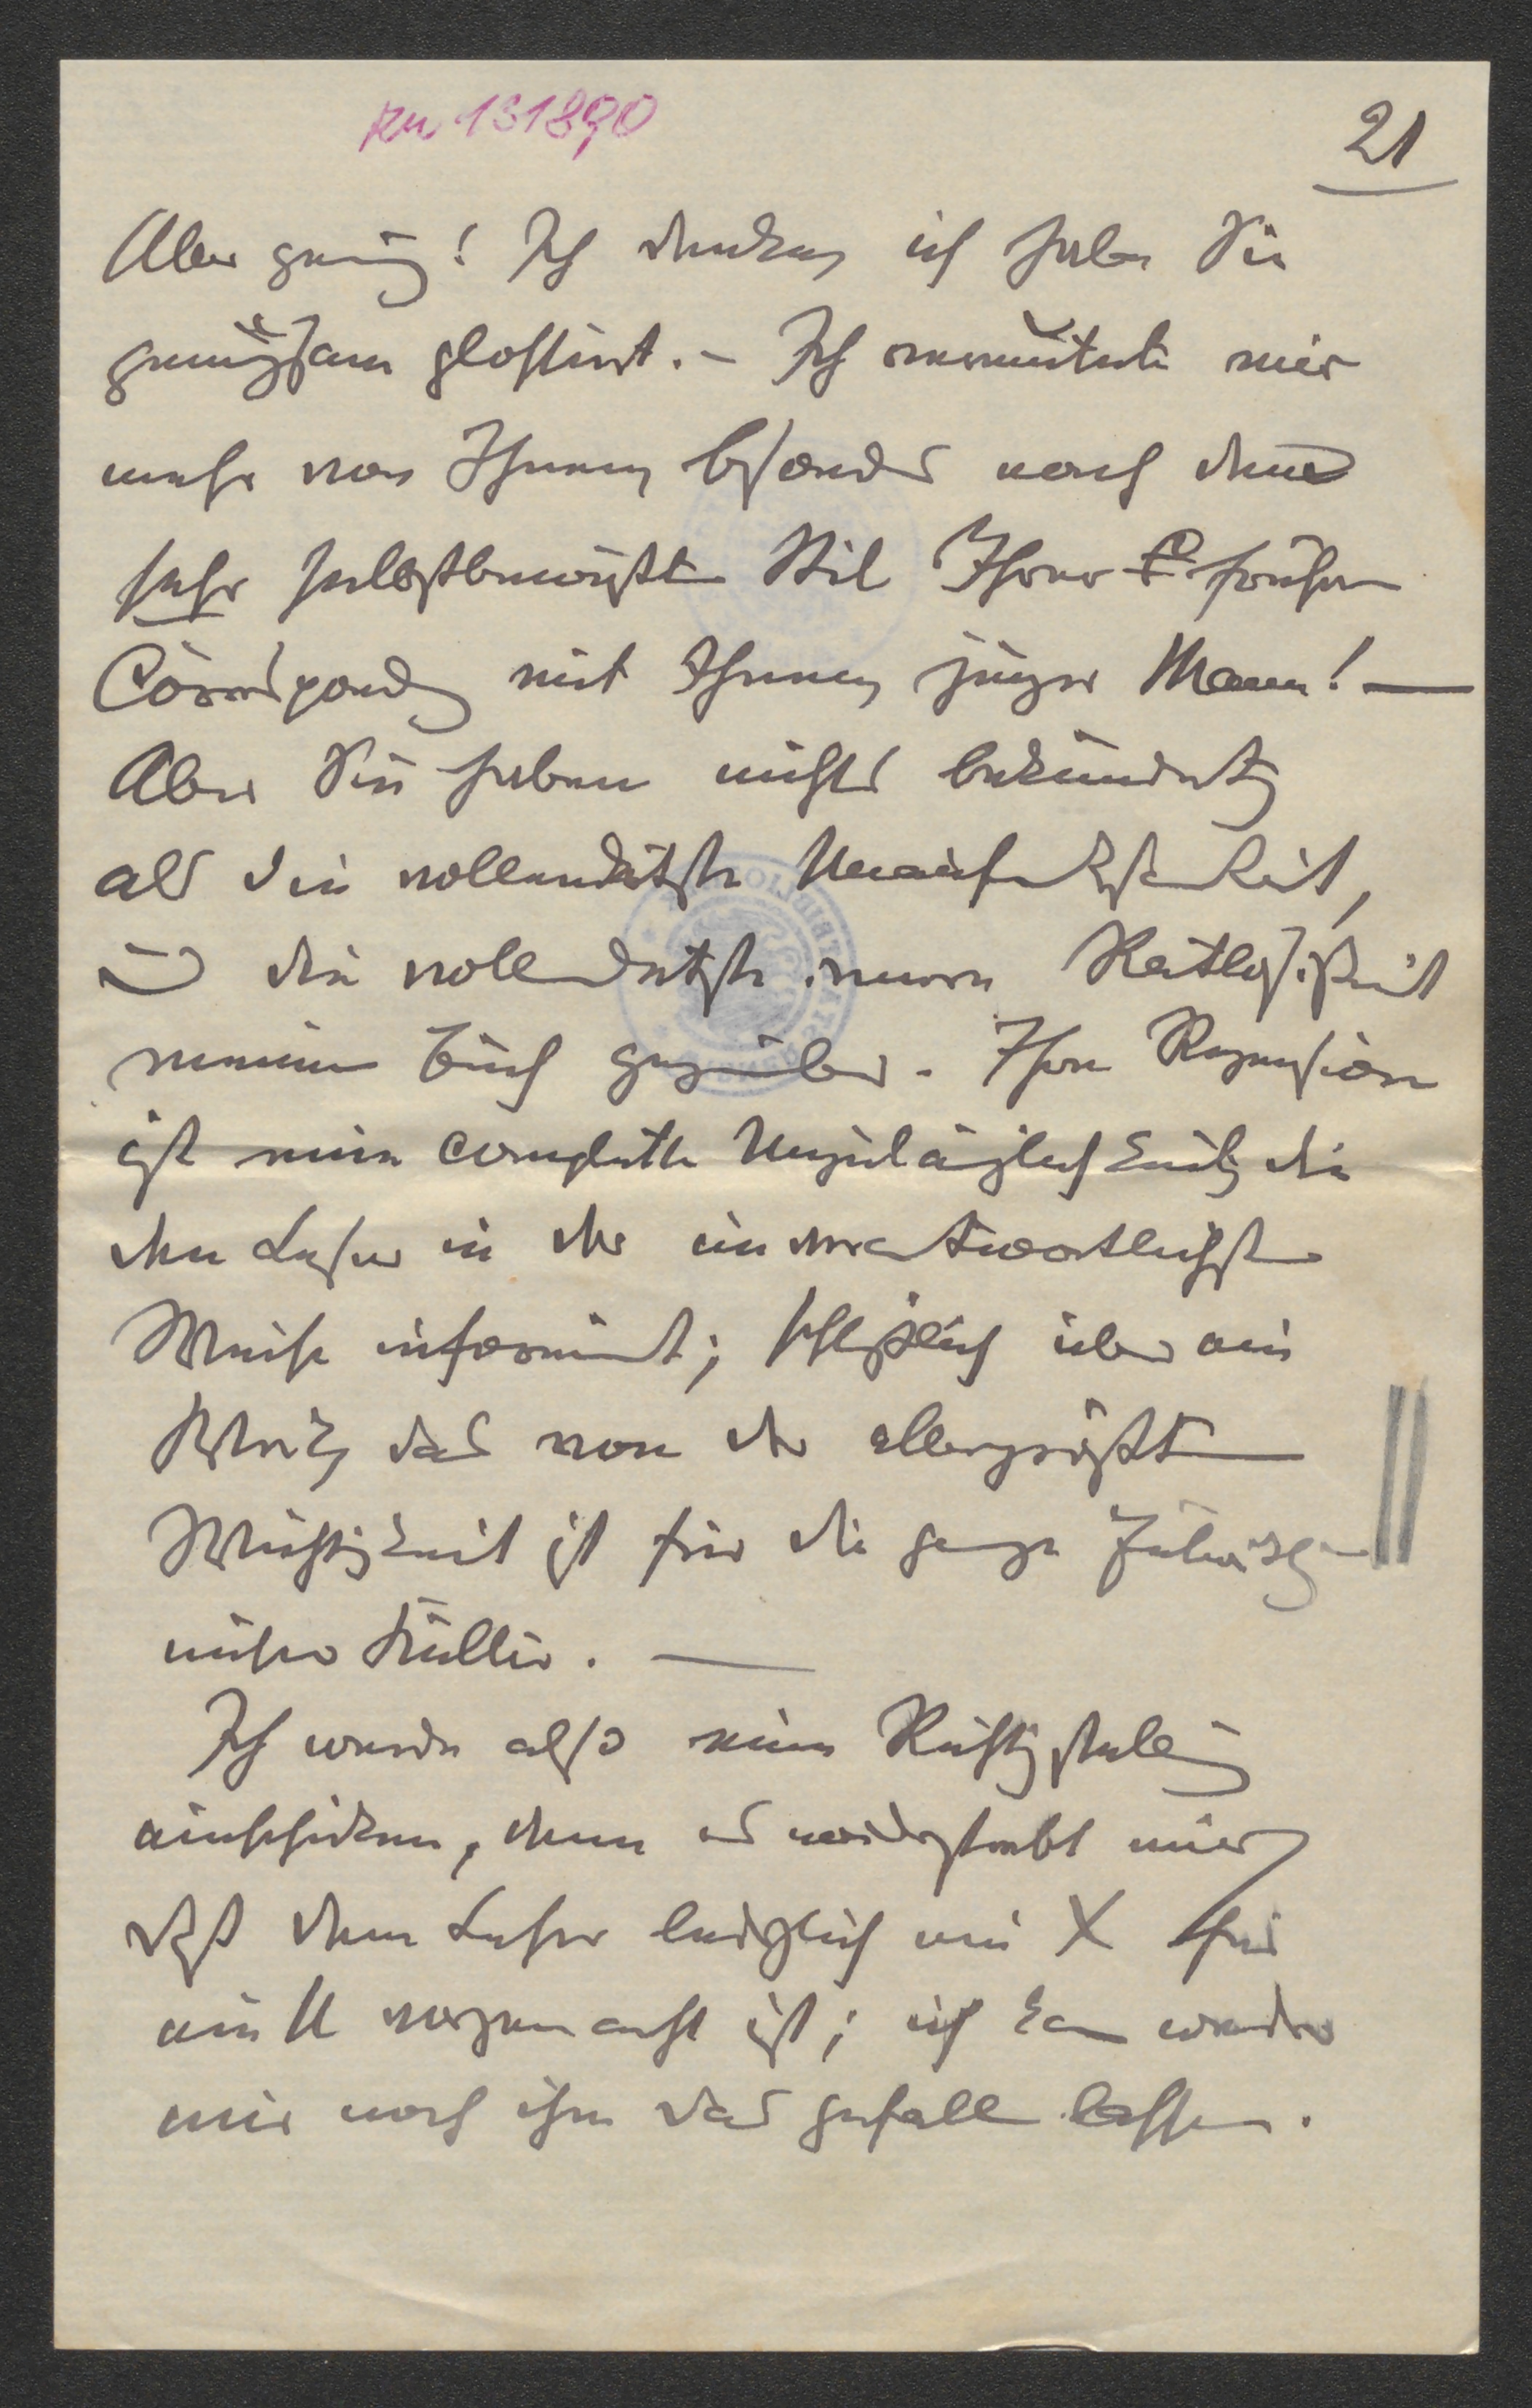 RN 131890
21
Aber genug! Ich denke, ich habe Sie
genugsam glossirt. – Ich vermutete mir
mehr von Ihnen, besonders nach dem
sehr selbstbewußten Stil Ihrer früheren
Correspondenz mit Ihnen, junger Mann! —
Aber Sie haben nichts bekundet,
als die vollendetste Unaufmerksamkeit,
und die vollendetste innere Ratlosigkeit
meinem Buch gegenüber. Ihre Rezension
ist eine complette Unzulänglichkeit, die
den Leser in der unverantwortlichsten
Weise informiert; schließlich über ein
Werk, das von der allergrößten
Wichtigkeit ist für die ganze Zukunft
unserer Kultur. —
Ich werde also eine Richtigstellung
einschicken, denn es widerstrebt mir,
daß dem Leser lediglich ein X für
ein U vorgemacht ist; ich kann weder
mir noch ihm das gefallen lassen.